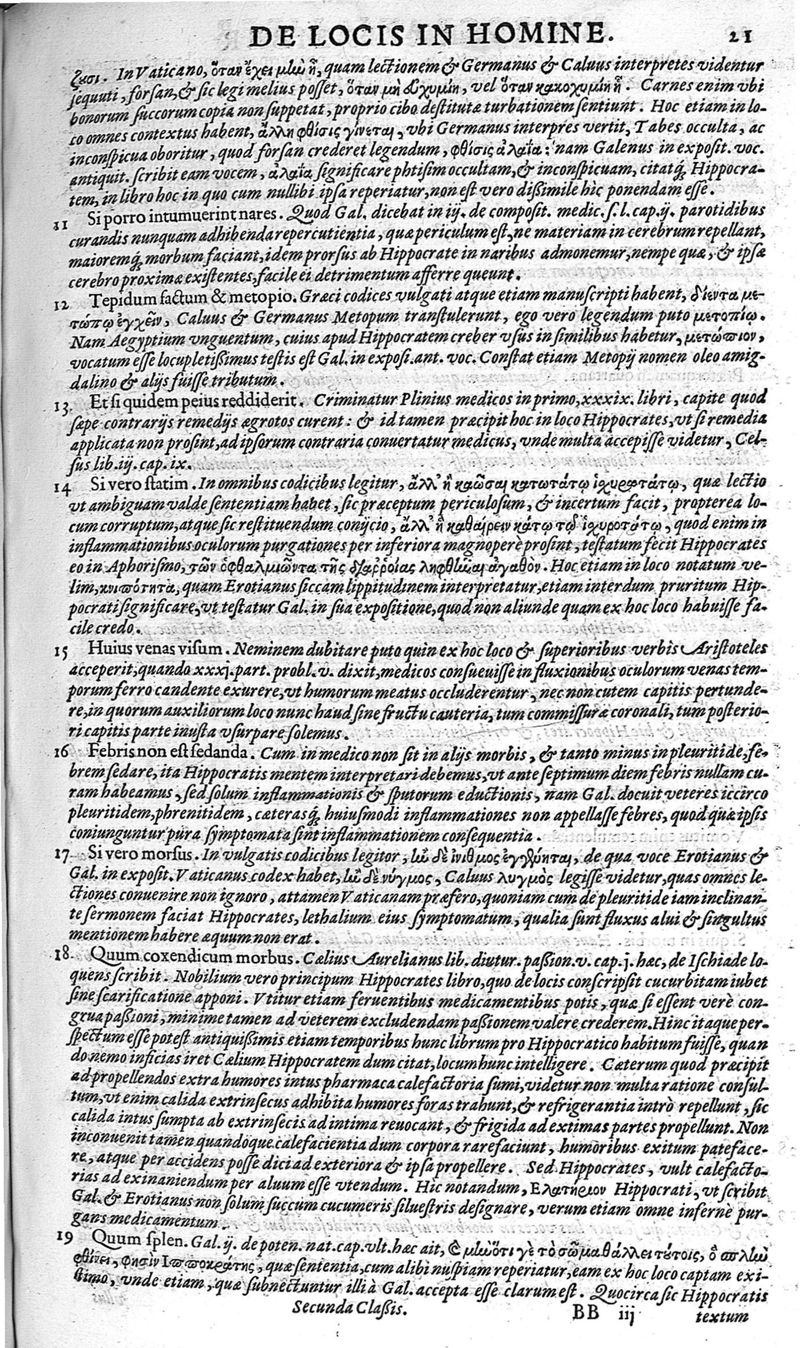 DE LOCIS IN HOMINE. 21
ζωσι. In Vaticano, ὅταν ἔχει μὲν ἢ, quam lectionem & Germanus & Caluus interpretes videntur
sequuti, forsan, & sic legi melius posset, ὅταν μὴ εὐχυμίη, vel ὅταν κακοχυμίη ᾖ. Carnes enim vbi
bonorum succorum copia non suppetat, proprio cibo destitutæ turbationem sentiunt. Hoc etiam in lo-
co omnes contextus habent, ἄλλη φθίσις γίνεται, vbi Germanus interpres vertit, Tabes occulta, ac
inconspicua oboritur, quod forsan crederet legendum, φθίσις ἀλαΐα: nam Galenus in exposit. voc.
antiquit. scribit eam vocem, ἀλαΐα significare phtisim occultam, & inconspicuam, citatq́; Hippocra-
tem, in libro hoc in quo cum nullibi ipsa reperiatur, non est vero dißimile hic ponendam esse.
11 Si porro intumuerint nares. Quod Gal. dicebat in iij. de composit. medic. s. l. cap. ij. parotidibus
curandis nunquam adhibenda repercutientia, quæ periculum est, ne materiam in cerebrum repellant,
maioremq́; morbum faciant, idem prorsus ab Hippocrate in naribus admonemur, nempe quæ, & ipsæ
cerebro proximæ existentes, facile ei detrimentum afferre queunt.
12 Tepidum factum & metopio. Græci codices vulgati atque etiam manuscripti habent, δίεντα με-
τώπῳ ἐγχεῖν, Caluus & Germanus Metopum transtulerunt, ego vero legendum puto μετοπίῳ.
Nam Aegyptium vnguentum, cuius apud Hippocratem creber vsus in similibus habetur, μετώπιον,
vocatum esse locupletißimus testis est Gal. in exposi. ant. voc. Constat etiam Metopij nomen oleo amig-
dalino & alijs fuisse tributum.
13 Et si quidem peius reddiderit. Criminatur Plinius medicos in primo, xxxix. libri, capite quod
sæpe contrarijs remedijs ægrotos curent: & id tamen præcipit hoc in loco Hippocrates, vt si remedia
applicata non prosint, ad ipsorum contraria conuertatur medicus, vnde multa accepisse videtur, Cel-
sus lib. iij. cap. ix.
14 Si vero statim. In omnibus codicibus legitur, ἀλλ' ἢ καῦσαι κατωτάτῳ ἰχυροτάτῳ, quæ lectio
vt ambiguam valde sententiam habet, sic præceptum periculosum, & incertum facit, propterea lo-
cum corruptum, atque sic restituendum conijcio, ἀλλ' ἢ καθαίρειν κάτω τῷ ἰχυροτάτῳ, quod enim in
inflammationibus oculorum purgationes per inferiora magnoperè prosint, testatum fecit Hippocrates
eo in Aphorismo, τὸν ὀφθαλμιῶντα τῆς διαρροίας ληφθῆναι ἀγαθόν. Hoc etiam in loco notatum ve-
lim, κνιπότητα, quam Erotianus siccam lippitudinem interpretatur, etiam interdum pruritum Hip-
pocrati significare, vt testatur Gal. in sua expositione, quod non aliunde quam ex hoc loco habuisse fa-
cile credo.
15 Huius venas visum. Neminem dubitare puto quin ex hoc loco & superioribus verbis Aristoteles
acceperit, quando xxxj. part. probl. v. dixit, medicos consueuisse in fluxionibus oculorum venas tem-
porum ferro candente exurere, vt humorum meatus occluderentur, nec non cutem capitis pertunde-
re, in quorum auxiliorum loco nunc haud sine fructu cauteria, tum commissuræ coronali, tum posterio-
ri capitis parte inusta vsurpare solemus.
16 Febris non est sedanda. Cum in medico non sit in alijs morbis, & tanto minus in pleuritide, fe-
brem sedare, ita Hippocratis mentem interpretari debemus, vt ante septimum diem febris nullam cu-
ram habeamus, sed solum inflammationis & sputorum eductionis, nam Gal. docuit veteres iccirco
pleuritidem, phrenitidem, cæterasq́; huiusmodi inflammationes non appellasse febres, quod quæ ipsis
coniunguntur pura symptomata sint inflammationem consequentia.
17 Si vero morsus. In vulgatis codicibus legitor, ἢν δὲ ἰνιθμος ἐγγίνηται, de qua voce Erotianus &
Gal. in exposit. Vaticanus codex habet, ἢν δὲ νύγμος, Caluus λυγμὸς legisse videtur, quas omnes le-
ctiones conuenire non ignoro, attamen Vaticanam præfero, quoniam cum de pleuritide iam inclinan-
te sermonem faciat Hippocrates, lethalium eius symptomatum, qualia sunt fluxus alui & singultus
mentionem habere æquum non erat.
18. Quum coxendicum morbus. Cælius Aurelianus lib. diutur. paßion. v. cap. j. hæc, de Ischiade lo-
quens scribit. Nobilium vero principum Hippocrates libro, quo de locis conscripsit cucurbitam iubet
sine scarificatione apponi. Vtitur etiam feruentibus medicamentibus potis, quæ si essent verè con-
grua paßioni, minime tamen ad veterem excludendam paßionem valere crederem. Hinc itaque per-
spectum esse potest antiquißimis etiam temporibus hunc librum pro Hippocratico habitum fuisse, quan
do nemo inficias iret Cælium Hippocratem dum citat, locum hunc intelligere. Cæterum quod præcipit
ad propellendos extra humores intus pharmaca calefactoria sumi, videtur non multa ratione consul-
tum, vt enim calida extrinsecus adhibita humores foras trahunt, & refrigerantia intrò repellunt, sic
calida intus sumpta ab extrinsecis ad intima reuocant, & frigida ad extimas partes propellunt. Non
inconuenit tamen quandoque calefacientia dum corpora rarefaciunt, humoribus exitum pateface-
re, atque per accidens posse dici ad exteriora & ipsa propellere. Sed Hippocrates, vult calefacto-
rias ad exinaniendum per aluum esse vtendum. Hic notandum, Ελατήριον Hippocrati, vt scribit
Gal. & Erotianus non solum succum cucumeris siluestris designare, verum etiam omne infernè pur-
gans medicamentum.
19 Quum splen. Gal. ij. de poten. nat. cap. vlt. hæc ait, Ε μὲν ὅτι γε τὸ σῶμα θάλλει τούτοις, ὁ σπλὴν
φθίνει, φησὶν Ιπποκράτης, quæ sententia, cum alibi nuspiam reperiatur, eam ex hoc loco captam exi-
stimo, vnde etiam, quæ subnectuntur illi à Gal. accepta esse clarum est. Quocirca sic Hippocratis
Secunda Claßis. BB iij textum